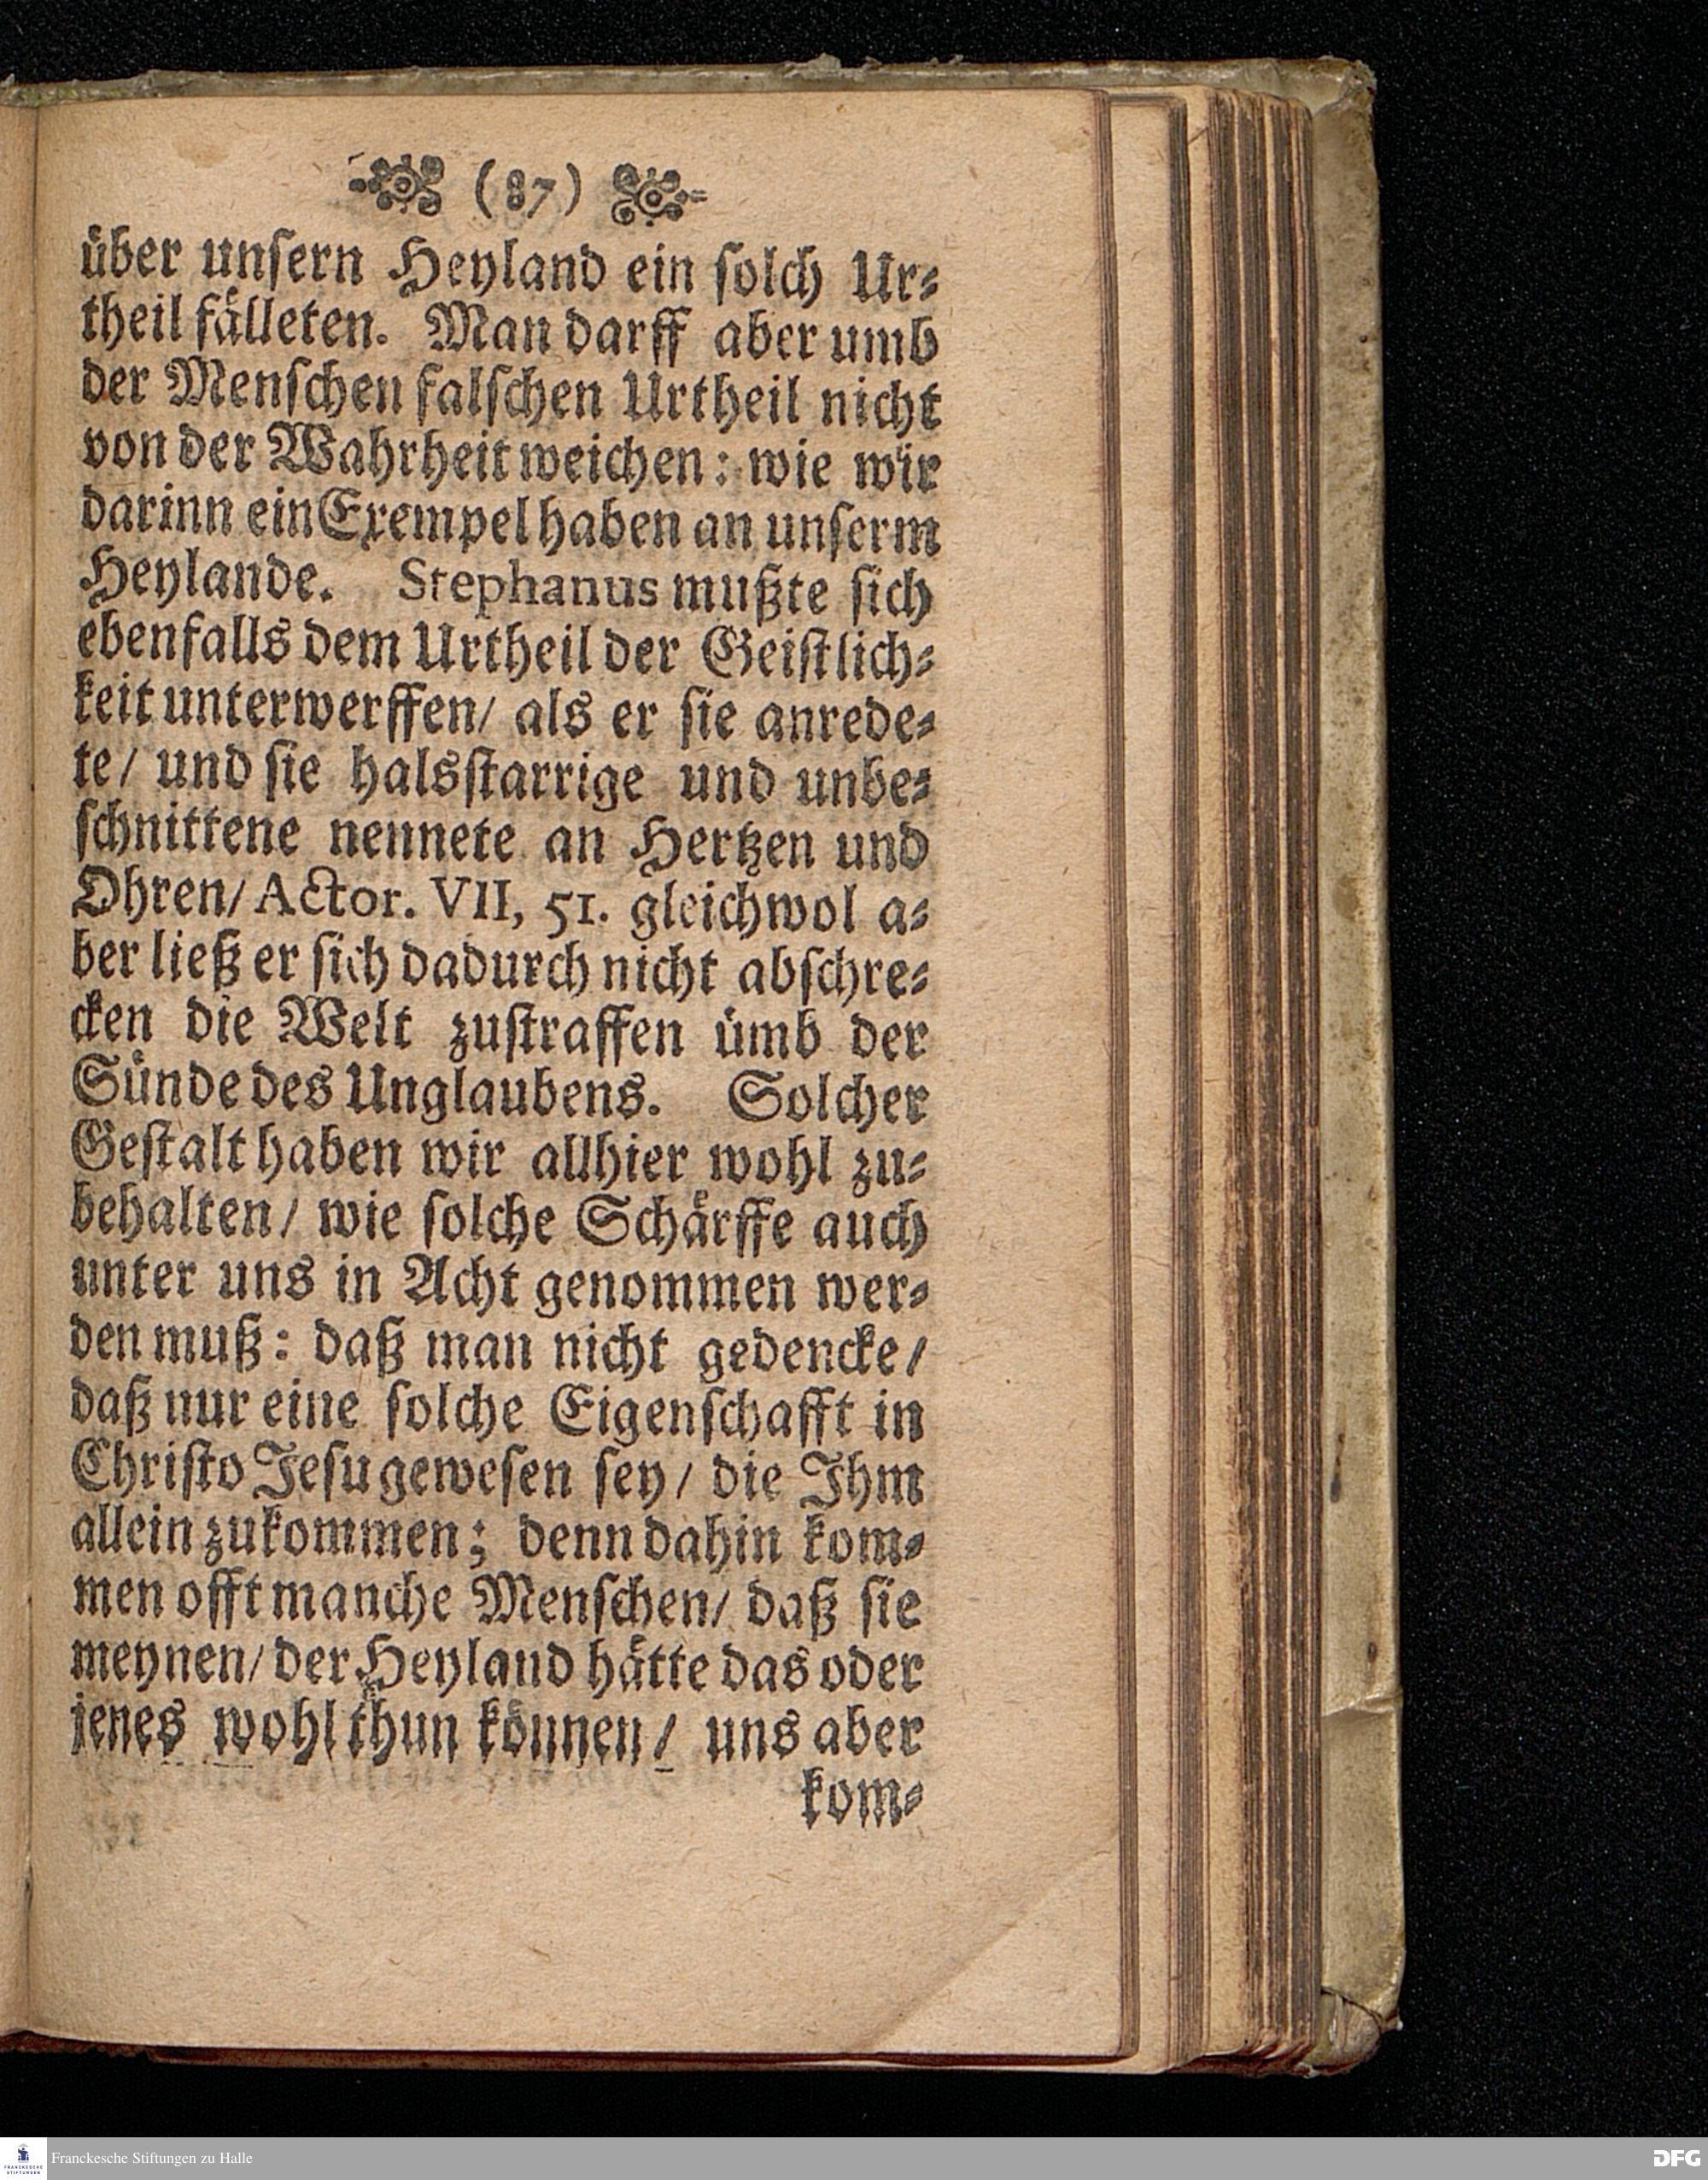 (87)
über unsern Heyland ein solch Ur-
theil fälleten. Man darff aber umb
der Menschen falschen Urtheil nicht
von der Wahrheit weichen: wie wir
darinn ein Exempel haben an unserm
Heylande. Stephanus mußte sich
ebenfalls dem Urtheil der Geistlich-
keit unterwerffen/ als er sie anrede-
te/ und sie halsstarrige und unbe-
schnittene nennete an Hertzen und
Ohren/ Actor. VII, 51. gleichwol a-
ber ließ er sich dadurch nicht abschre-
cken die Welt zustraffen ümb der
Sünde des Unglaubens. Solcher
Gestalt haben wir allhier wohl zu-
behalten/ wie solche Schärffe auch
unter uns in Acht genommen wer-
den muß: daß man nicht gedencke/
daß nur eine solche Eigenschafft in
Christo Jesu gewesen sey/ die Ihm
allein zukommen; denn dahin kom-
men offt manche Menschen/ daß sie
meynen/ der Heyland hätte das oder
jenes wohl thun können/ uns aber
kom-
FRANCKESCHE
STIFTUNGEN
Franckesche Stiftungen zu Halle
DFG